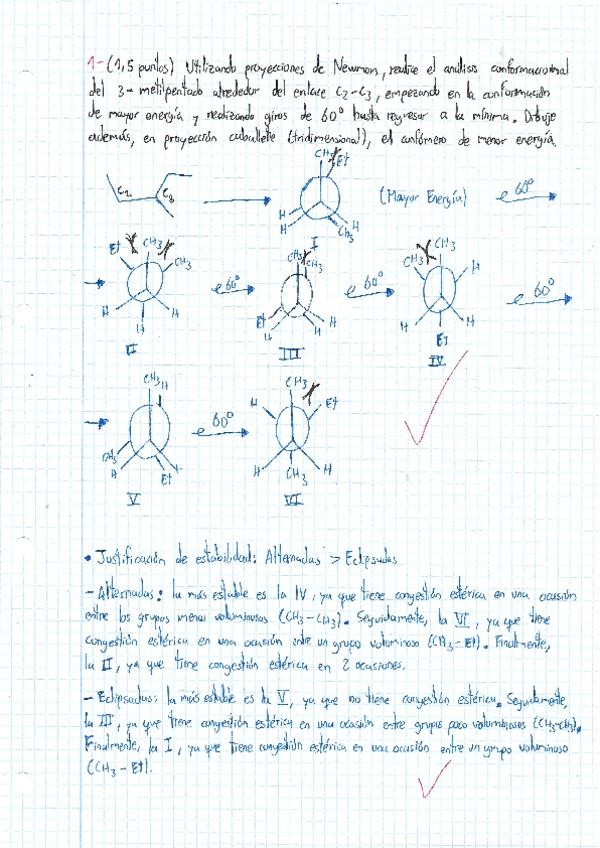 1- (1,5 puntos) Utilizando proyecciones de Newman, realice el análisis conformacional
del 3-metilpentano alrededor del enlace C2-C3, empezando en la conformación
de mayor energía y realizando giros de 60° hasta regresar a la mínima. Dibuje
además, en proyección caballete (tridimensional), el confórmero de menor energía.
C2 C3 CH3 Et H H H CH3 I (Mayor Energía) 60°
Et CH3 CH3 H H H II 60° CH3 CH3 Et H H H III 60° CH3 CH3 H H H Et IV 60°
CH3 H CH3 H H Et V 60° CH3 H Et H H CH3 VI
• Justificación de estabilidad: Alternadas > Eclipsadas
- Alternadas: la más estable es la IV, ya que tiene congestión estérica en una ocasión
entre los grupos menos voluminosos (CH3-CH3). Seguidamente, la VI, ya que tiene
congestión estérica en una ocasión entre un grupo voluminoso (CH3-Et). Finalmente,
la II, ya que tiene congestión estérica en 2 ocasiones.
- Eclipsadas: la más estable es la V, ya que no tiene congestión estérica. Seguidamente,
la III, ya que tiene congestión estérica en una ocasión entre grupos poco voluminosos (CH3-CH3).
Finalmente, la I, ya que tiene congestión estérica en una ocasión entre un grupo voluminoso
(CH3-Et).